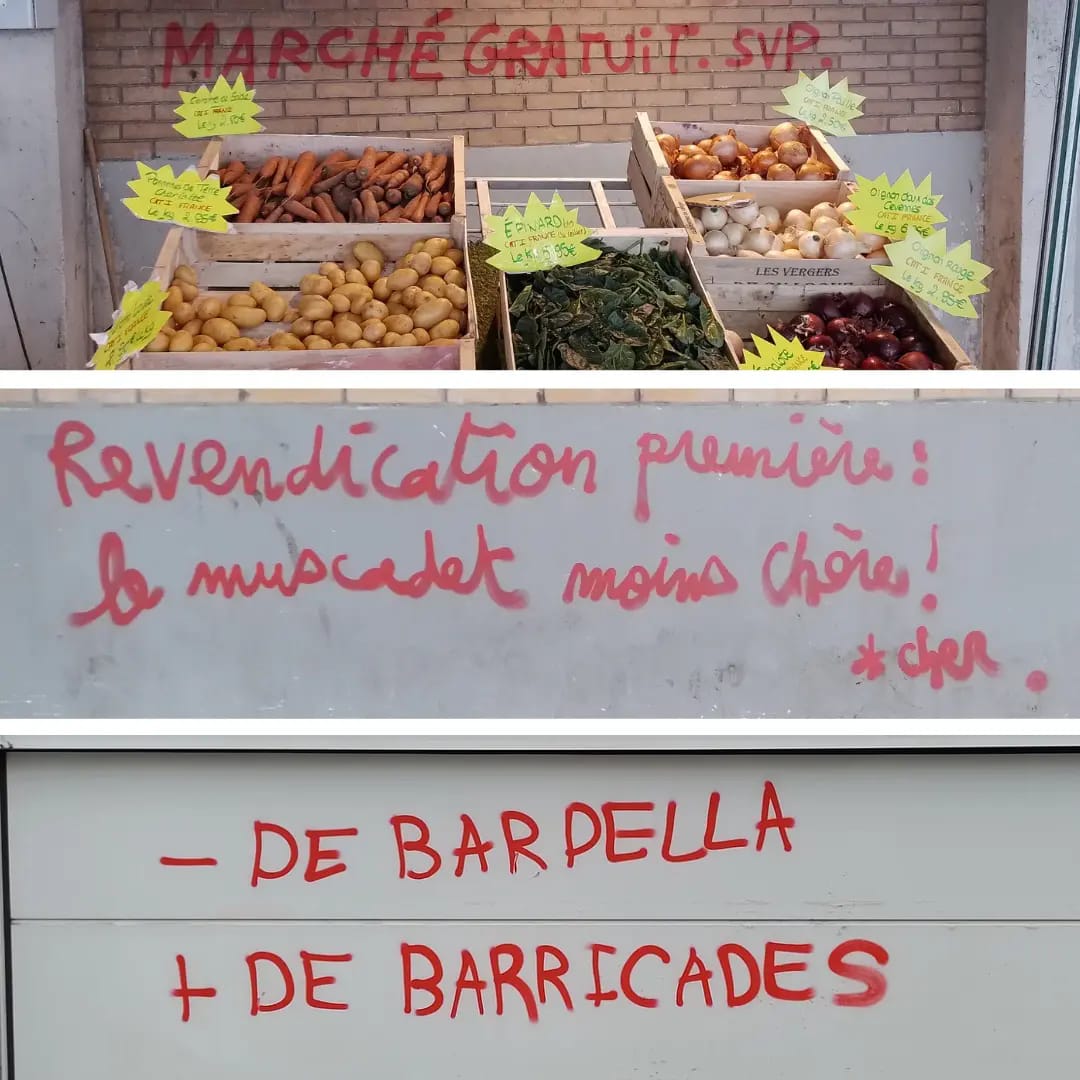 MARCHÉ GRATUIT. SVP.
CAT I FRANCE
Le kg 2.80€
Pomme de Terre
Charlotte
CAT I FRANCE
Le kg 2.95€
EPINARD
CAT I FRANCE
Le kg 5.95€
Oignon Paille
CAT I FRANCE
Oignon doux des
Cévennes
CAT I FRANCE
Oignon Rouge
CAT I FRANCE
Le kg 2.95€
LES VERGERS
Revendication première :
le muscadet moins chère !
*cher.
- DE BARDELLA
+ DE BARRICADES